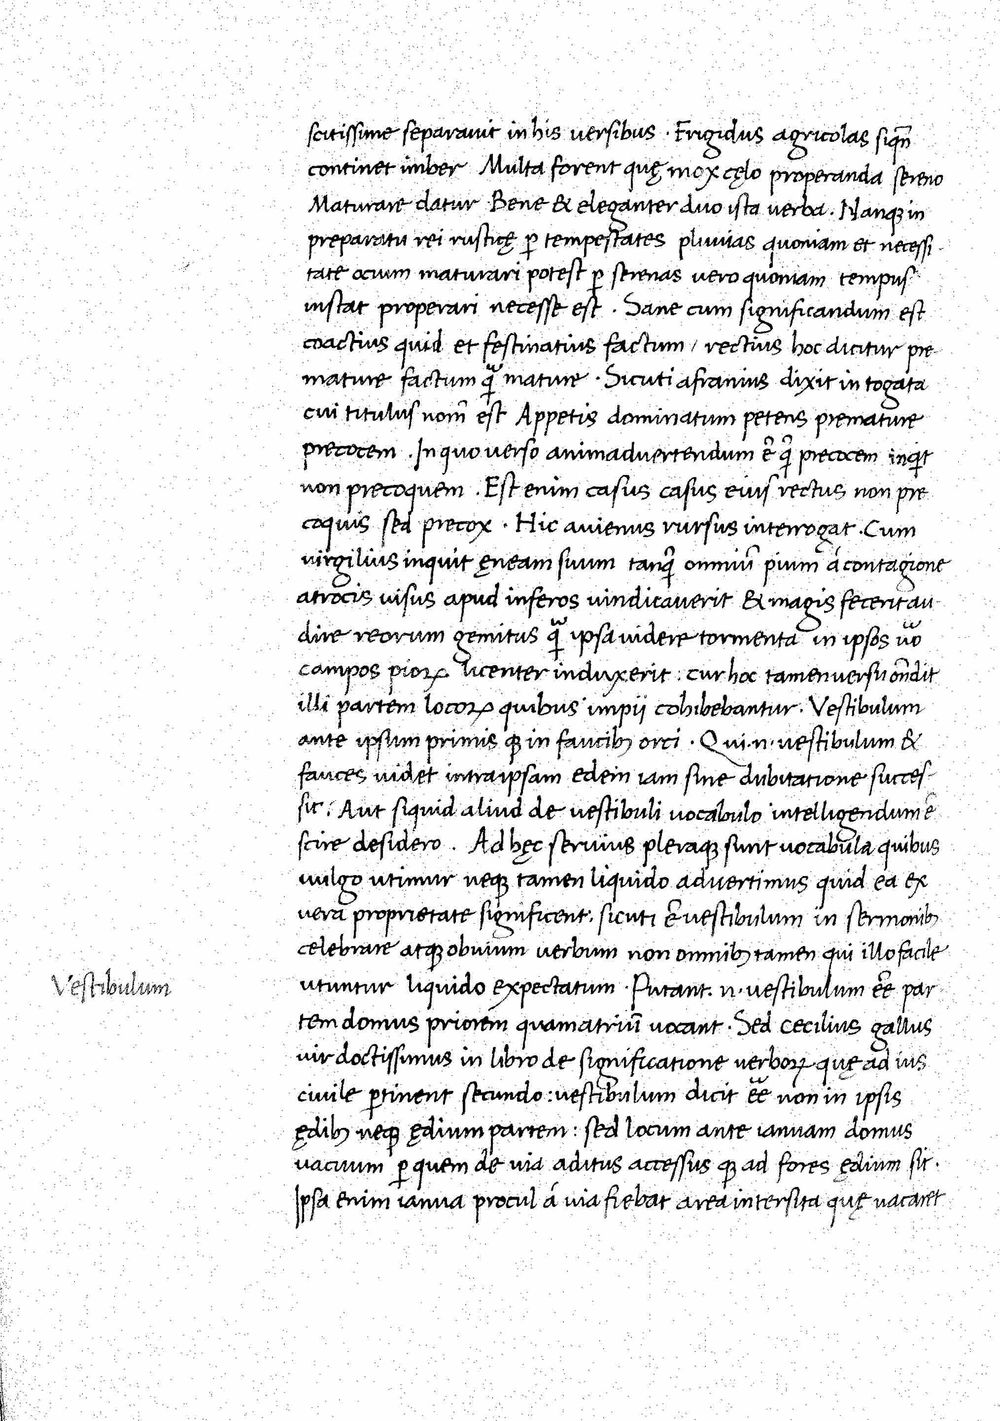 scitissime separauit in his versibus · Frigidus agricolas siqñ
continet imber Multa forent quę mox cęlo properanda sereno
Maturare datur Bene & eleganter duo ista verba . Nanqꝫ in
preparatu rei rusticę ꝑ tempestates pluuias quoniam et necessi-
tate ocium maturari potest ꝑ serenas vero quoniam tempus
instat properari necesse est . Sane cum significandum est
coactius quid et festinatius factum / rectius hoc dicitur pre-
mature factum qᷓ mature · Sicuti afranius dixit in togata
cui titulus nom̄ est Appetis dominatum petens premature
precocem . In quo verso animaduertendum ē qͥ precocem inqͥt
non precoquem . Est enim casus casus eius rectus non pre
coquis sed precox · Hic auienus rursus interrogat . Cum
virgilius inquit ęneam suum tanqͣ omniū pium á contagione
atrocis uisus apud inferos uindicauerit & magis fecerit au-
dire reorum gemitus qᷓ ipsa uidere tormenta in ipsos ūo
campos pioꝝ licenter induxerit : cur hoc tamen uersu on̄dit
illi partem locoꝝ quibus impii cohibebantur . Vestibulum
ante ipsum primis qꝫ in faucibꝫ orci . Qui .n. uestibulum &
fauces uidet intra ipsam edem iam sine dubitatione succes-
sit : Aut siquid aliud de uestibuli uocabulo intelligendum ē
scire desidero . Ad hęc seruius pleraqꝫ sunt uocabula quibus
uulgo utimur neqꝫ tamen liquido aduertimus quid ea ex
uera proprietate significent . sicuti ē uestibulum in sermonibꝫ
celebrare atqꝫ obuium verbum non omnibꝫ tamen qui illo facile
utuntur liquido expectatum · Putant . n . uestibulum eē̄ par-
tem domus priorem quam atriū uocant . Sed cecilius gallus
uir doctissimus in libro de significatione uerboꝝ quę ad ius
ciuile ꝑtinent secundo : uestibulum dicit eē̄ non in ipsis
ędibꝫ neqꝫ ędium partem : sed locum ante ianuam domus
uacuum ꝑ quem de uia aditus accessus qꝫ ad fores ędium sit .
Ipsa enim ianua procul á uia fiebat area intersita quę uacaret
Vestibulum